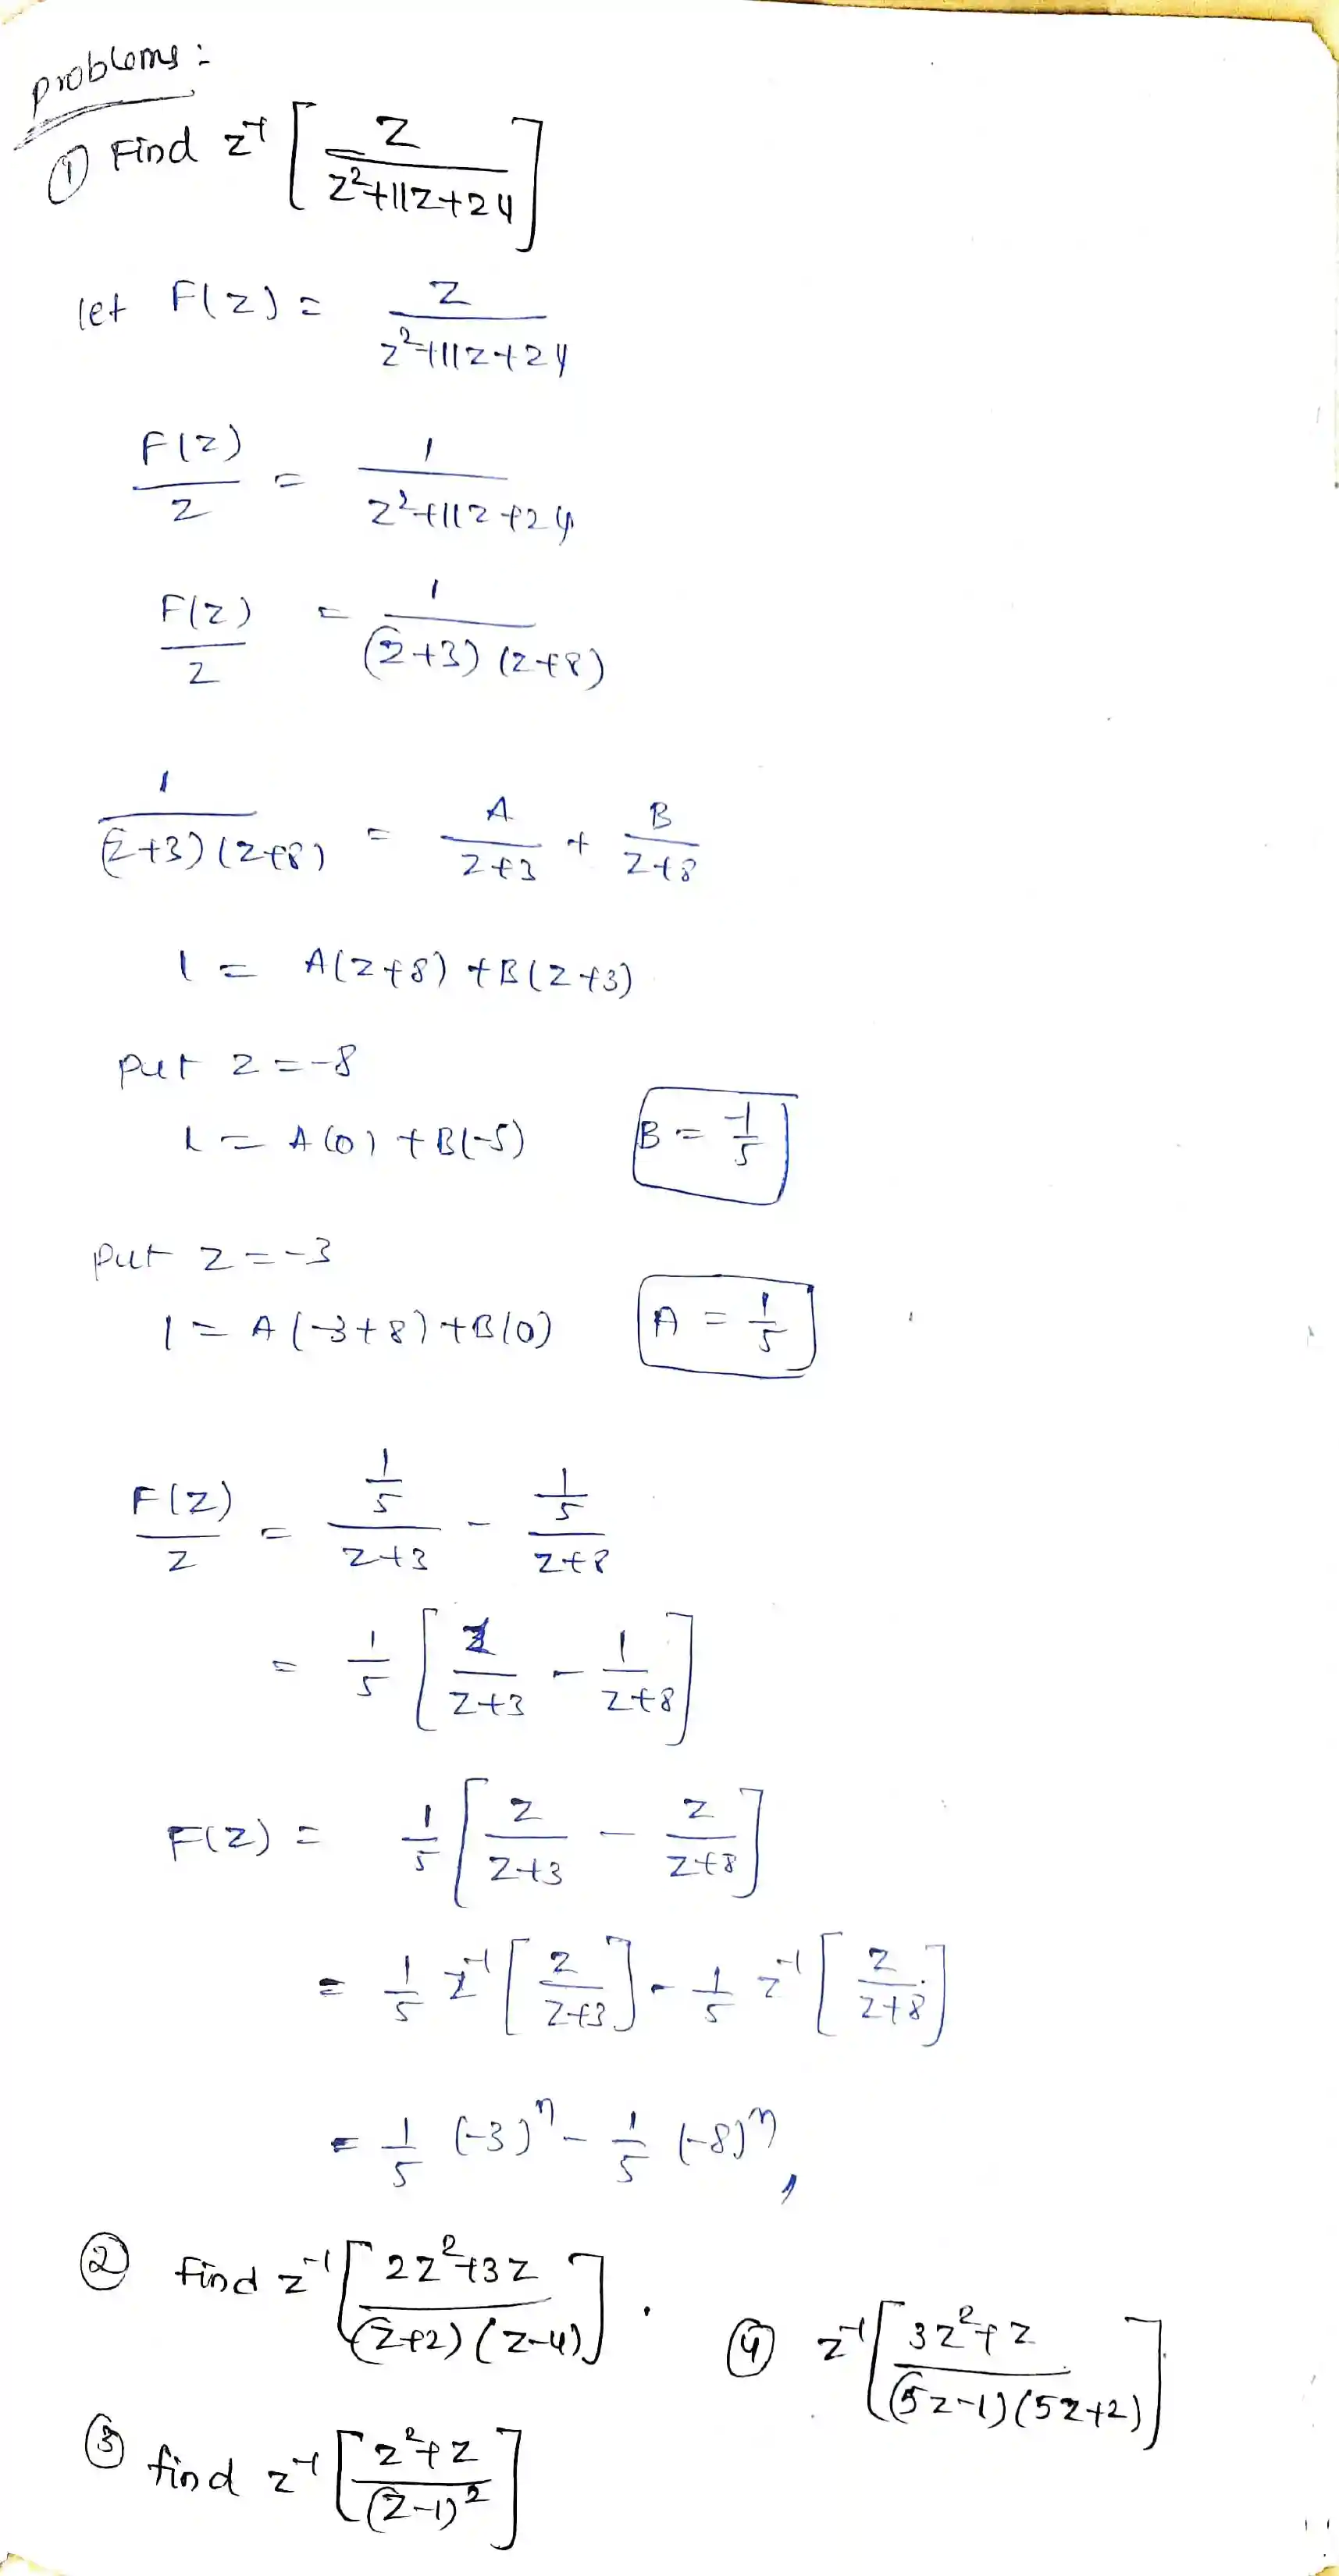 problems:
① Find z⁻¹ [ z / z²+11z+24 ]
let F(z) = z / z²+11z+24
F(z) / z = 1 / z²+11z+24
F(z) / z = 1 / (z+3) (z+8)
1 / (z+3) (z+8) = A / z+3 + B / z+8
1 = A(z+8) + B(z+3)
put z = -8
1 = A(0) + B(-5) B = -1/5
put z = -3
1 = A(-3+8) + B(0) A = 1/5
F(z) / z = 1/5 / z+3 - 1/5 / z+8
= 1/5 [ 1 / z+3 - 1 / z+8 ]
F(z) = 1/5 [ z / z+3 - z / z+8 ]
= 1/5 z⁻¹ [ z / z+3 ] - 1/5 z⁻¹ [ z / z+8 ]
= 1/5 (-3)ⁿ - 1/5 (-8)ⁿ,
② find z⁻¹ [ 2z²+3z / (z+2) (z-4) ].
④ z⁻¹ [ 3z²+z / (5z-1) (5z+2) ]
③ find z⁻¹ [ z²+z / (z-1)² ]